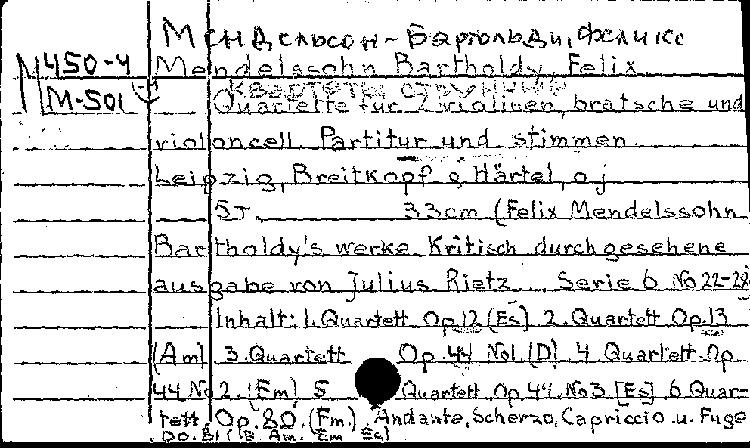 Мендельсон-Бартольди, Феликс
М450-4 Mendelssohn Bartholdy, Felix
Квартеты струнные
M-501 Quartette für 2 violinen, bratsche und
violoncell. Partitur und stimmen
Leipzig, Breitkopf & Härtel, o j
5т. 33cm (Felix Mendelssohn
Bartholdy's werke. Kritisch durchgesehene
ausgabe von Julius Rietz... Serie 6 No 22-28
Inhalt: 1. Quartett Op.12 (Es) 2. Quartett Op.13
(Am) 3. Quartett Op. 44 No1. (D) 4 Quartett. Op
44 No 2. (Em) 5 Quartett. Op. 44. No 3 [Es] 6 Quar-
tett. Op. 80. (Fm). Andante, Scherzo, Capriccio u. Fuge
Op. 81 Am. Em Es)